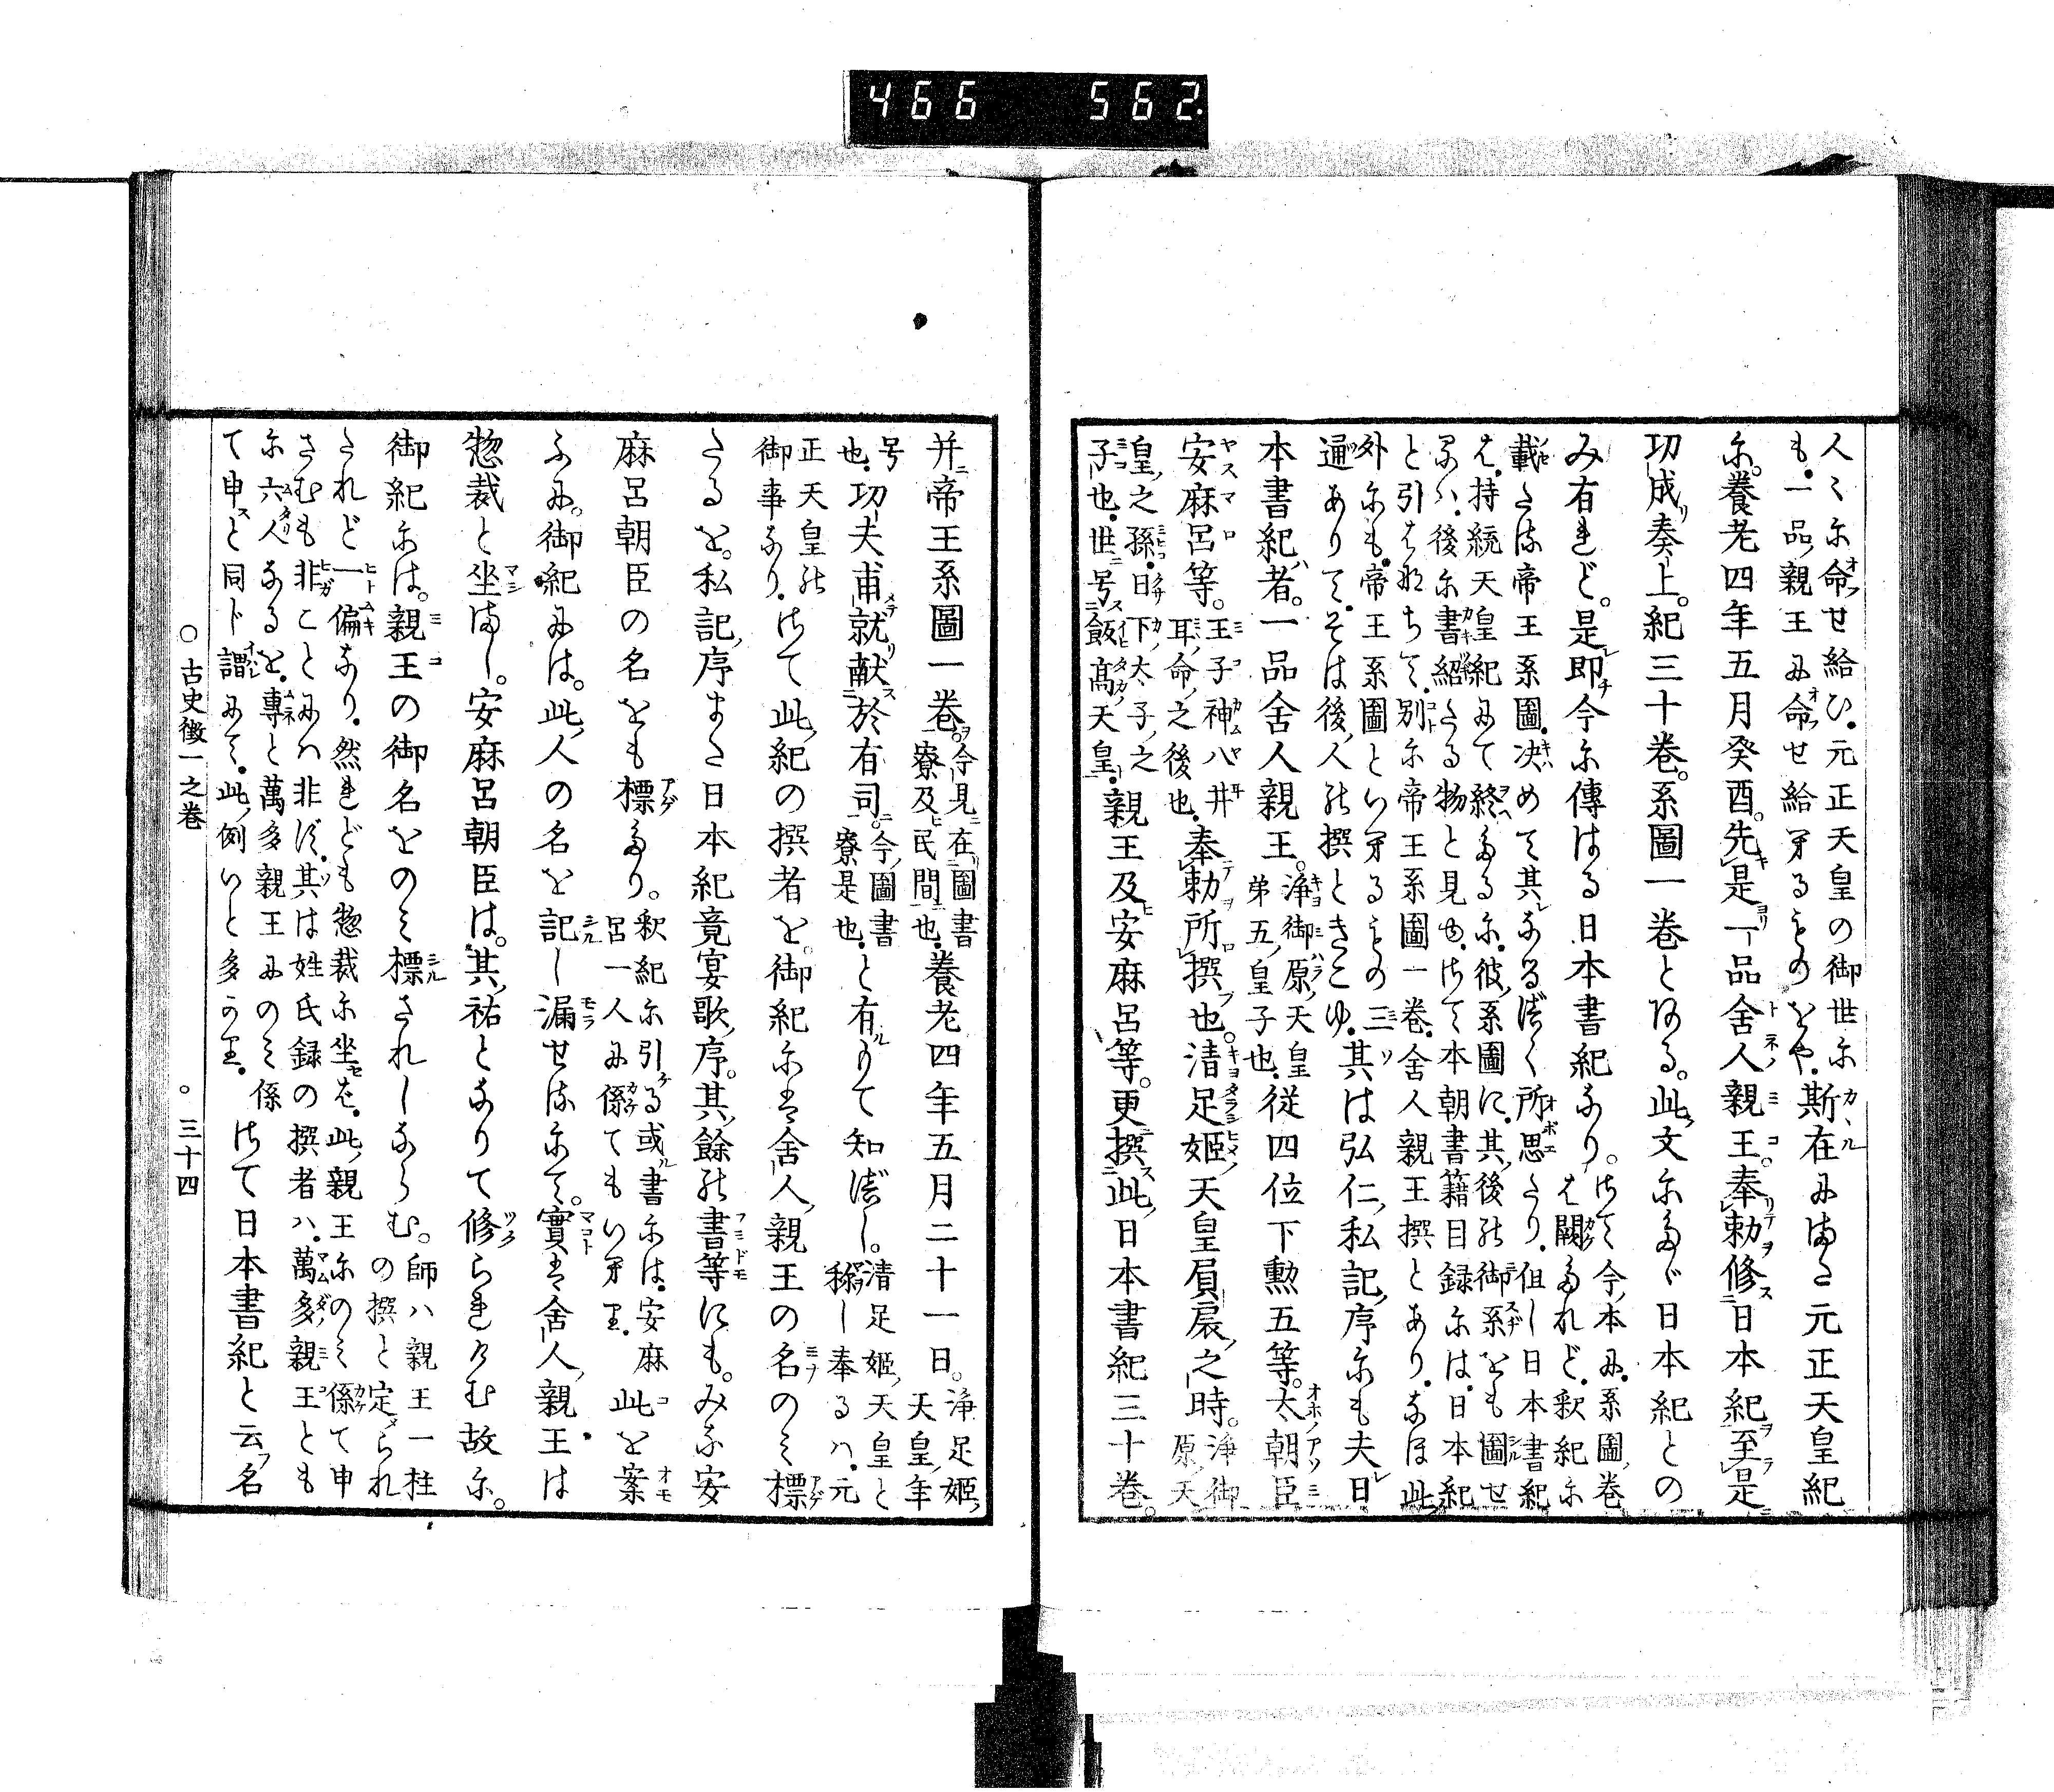 466 562
人々に命せ給ひ。元正天皇の御世に
も。一品親王に命せ給へるものをや。斯在にまた元正天皇紀
に。養老四年五月癸酉。先是一品舎人親王。奉勅修日本紀至是
功成奏上。紀三十巻。系圖一巻とある。此文にたゞ日本紀との
み有れど。是即今に傳はる日本書紀なり。さて今本に。系圖巻
は闕たれど。釈紀に
載たる帝王系圖。决めて其なるべく所思たり。但し日本書紀
は。持統天皇紀にて終たるに。彼系圖に。其後の御系をも圖せ
るは。後に書紹たる物と見ゆ。さて本朝書籍目録には。日本紀
と引はなちて。別に帝王系圖一巻。舎人親王撰とあり。なほ此
外にも。帝王系圖といへるもの三
通ありて。そは後人の撰ときこゆ。其は弘仁私記序にも夫日
本書紀者。一品舎人親王。浄御原天皇
第五皇子也。従四位下勲五等。太朝臣
安麻呂等。王子神八井
耳命之後也。奉勅所撰也。清足姫天皇負扆之時。浄御
原天
皇之孫。日下太子之
子也。世号飯高天皇。親王及安麻呂等。更撰此日本書紀三十巻。
并帝王系圖一巻。今見在圖書
寮及民間也。養老四年五月二十一日。浄足姫
天皇年
号
也。功夫甫就献於有司。今圖書
寮是也。と有りて知べし。清足姫天皇と
稱し奉るハ。元
正天皇の
御事なり。さて此紀の撰者を。御紀には舎人親王の名のみ標
たるを。私記序また日本紀竟宴歌序。其餘の書等にも。みな安
麻呂朝臣の名をも標たり。釈紀に引る或書には。安麻
呂一人に係てもいへり。此を案
ふに。御紀には。此人の名を記し漏せるにて。實は舎人親王は
惣裁と坐まし。安麻呂朝臣は。其祐となりて修られけむ故に。
御紀には。親王の御名をのみ標されしならむ。師ハ親王一柱
の撰と定められ
たれど一偏なり。然れども惣裁に坐せば。此親王にのみ係て申
さむも非ことにハ非ず。其は姓氏録の撰者ハ。萬多親王とも
に六人なるを。專と萬多親王にのみ係
て申すと同じ謂にて。此例いと多かり。さて日本書紀と云名
○古史徴一之巻 ○三十四